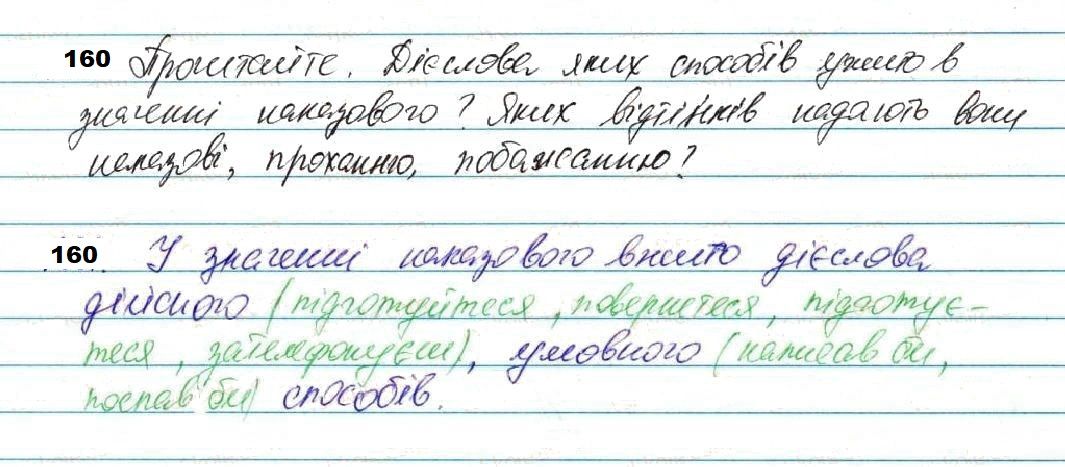 160 Прочитайте. Дієслова яких способів ужито в
значенні наказового? Яких відтінків надають вони
наказові, проханню, побажанню?
160 У значенні наказового вжито дієслова
дійсного (підготуйтеся, повернетеся, підготує-
теся, зателефонуєш), умовного (написав би,
поспав би) способів.